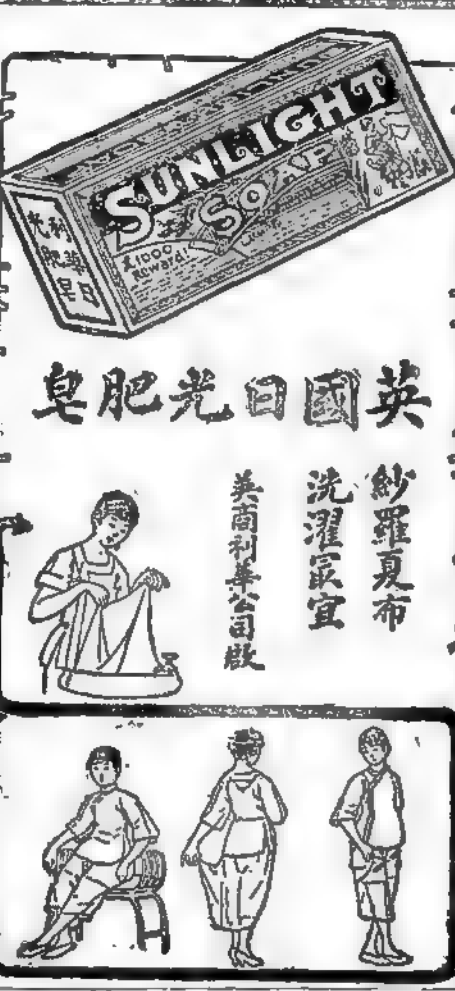 SUNLIGHT
SOAP
£1000
Reward!
利華
日光
肥皂
英國日光肥皂
紗羅夏布
洗濯㝡宜
英商利華公司啟